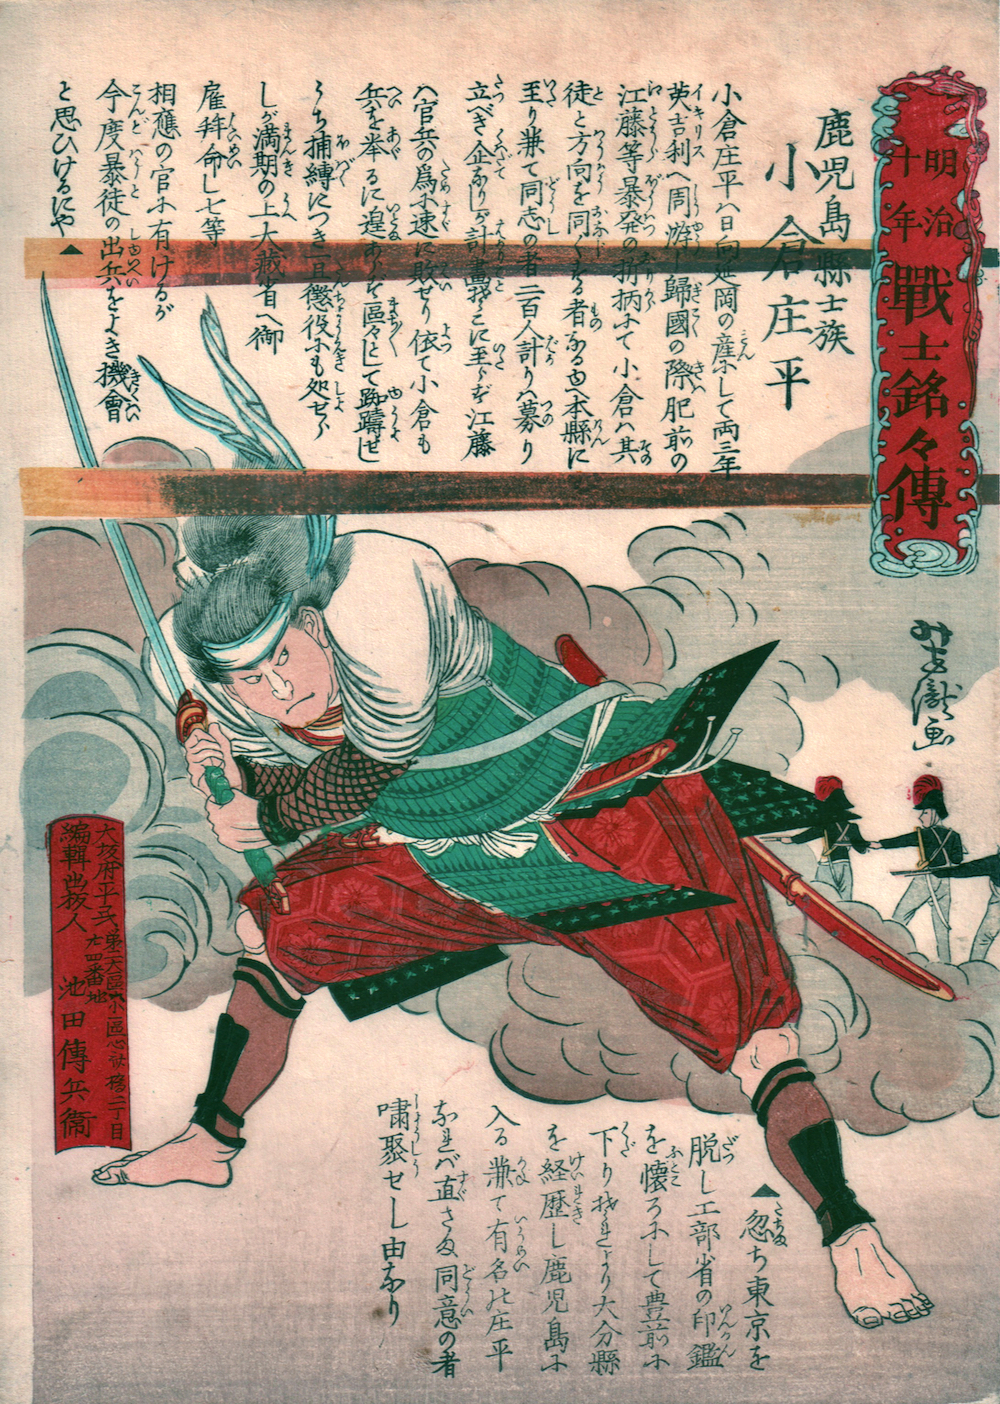 明治
十年
戰士銘々傳
鹿児島縣士族
小倉庄平
小倉庄平ハ日向延岡の産にして両三年
英吉利へ周游し歸國の際肥前の
江藤等暴発の折柄にて小倉ハ其
徒と方向を同くする者なるゆへ本縣に
至り兼て同志の者二百人計りハ募り
立べき企なりしが計畫こゝに至らず江藤
ハ官兵の為に速に敗せり依て小倉も
兵を挙るに遑あらず區々として踟躊せし
うち捕縛につき一旦懲役にも処せら
しが満期の上大藏省へ御
雇拜命し七等
相應の官に有けるが
今度暴徒の出兵をよき機會
と思ひけるにや▲
▲忽ち東京を
脱し工部省の印鑑
を懐ろにして豊前に
下り夫より大分縣
を経歴し鹿児島に
入る兼て有名の庄平
なれバ直さま同意の者
嘯聚せし由なり
芳瀧画
大坂府平民
第二大區
廿四番地
編輯出板人
池田傳兵衞